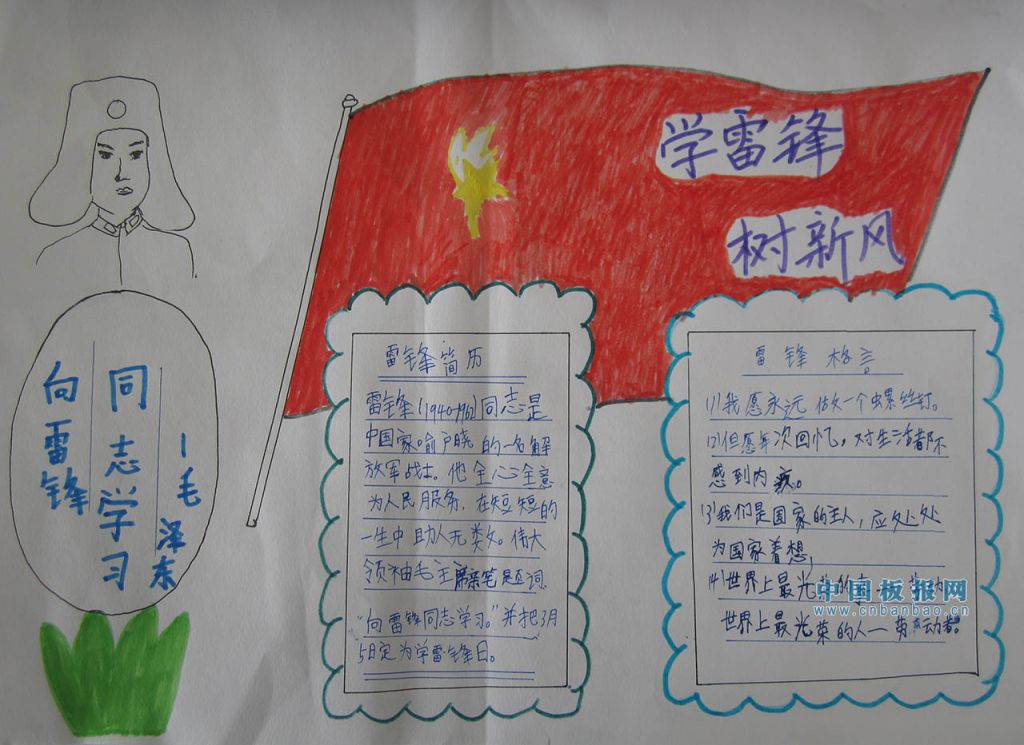 学雷锋
树新风
向雷锋
同志学习
—毛泽东
雷锋简历
雷锋(1940-1962)同志是
中国家喻户晓的一名解
放军战士。他全心全意
为人民服务,在短短的
一生中助人无数。伟大
领袖毛主席亲笔题词
“向雷锋同志学习。”并把3月
5日定为学雷锋日。
雷锋格言
(1)我愿永远做一个螺丝钉。
(2)但愿每次回忆,对生活都不
感到内疚。
(3)我们是国家的主人,应处处
为国家着想,
(4)世界上最光荣的
世界上最光荣的人—劳动者。
中国板报网
www.cnbanbao.cn